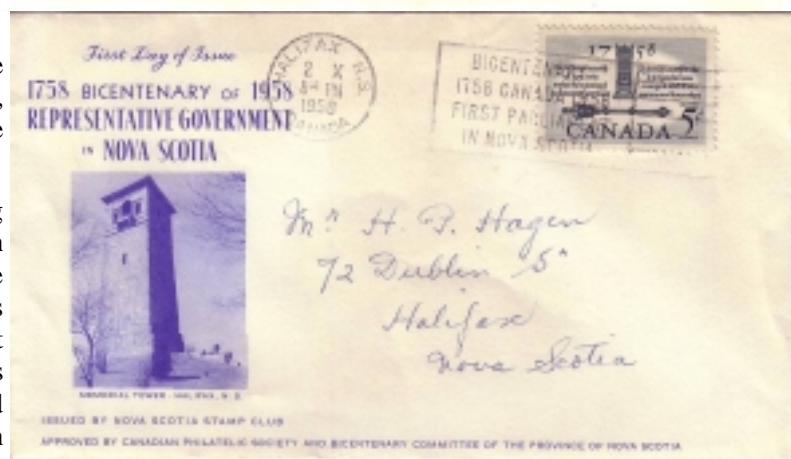 First Day of Issue
1758 BICENTENARY OF 1958
REPRESENTATIVE GOVERNMENT
IN NOVA SCOTIA
MEMORIAL TOWER - HALIFAX, N. S.
ISSUED BY NOVA SCOTIA STAMP CLUB
APPROVED BY CANADIAN PHILATELIC SOCIETY AND BICENTENARY COMMITTEE OF THE PROVINCE OF NOVA SCOTIA
HALIFAX N.S.
2 X
PM
1958
CANADA
1758 CANADA
FIRST
IN NOVA SCOTIA
1758
CANADA 5
Mr H. P. Hagen
72 Dublin St
Halifax
Nova Scotia